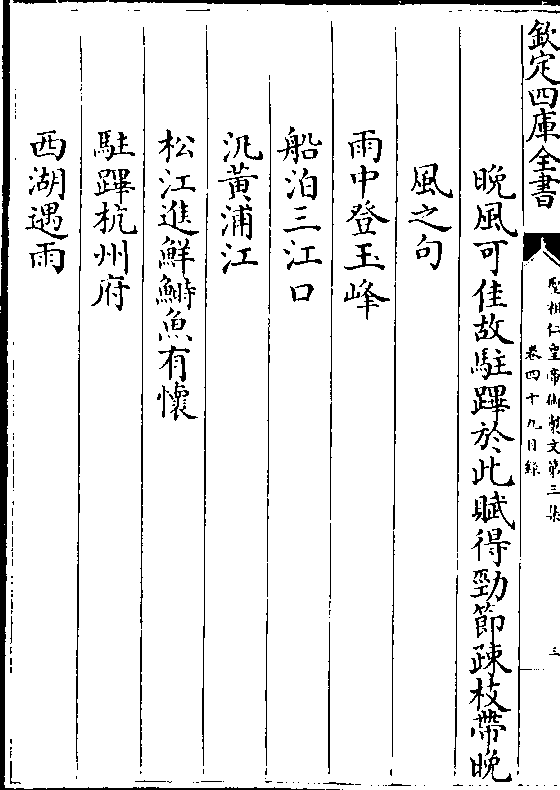 欽定四庫全書
聖祖仁皇帝御製文第三集
卷四十九目錄
三
晚風可佳故駐蹕於此賦得勁節踈枝帶晚
風之句
雨中登玉峰
船泊三江口
汎黃浦江
松江進鮮鰣魚有懷
駐蹕杭州府
西湖遇雨